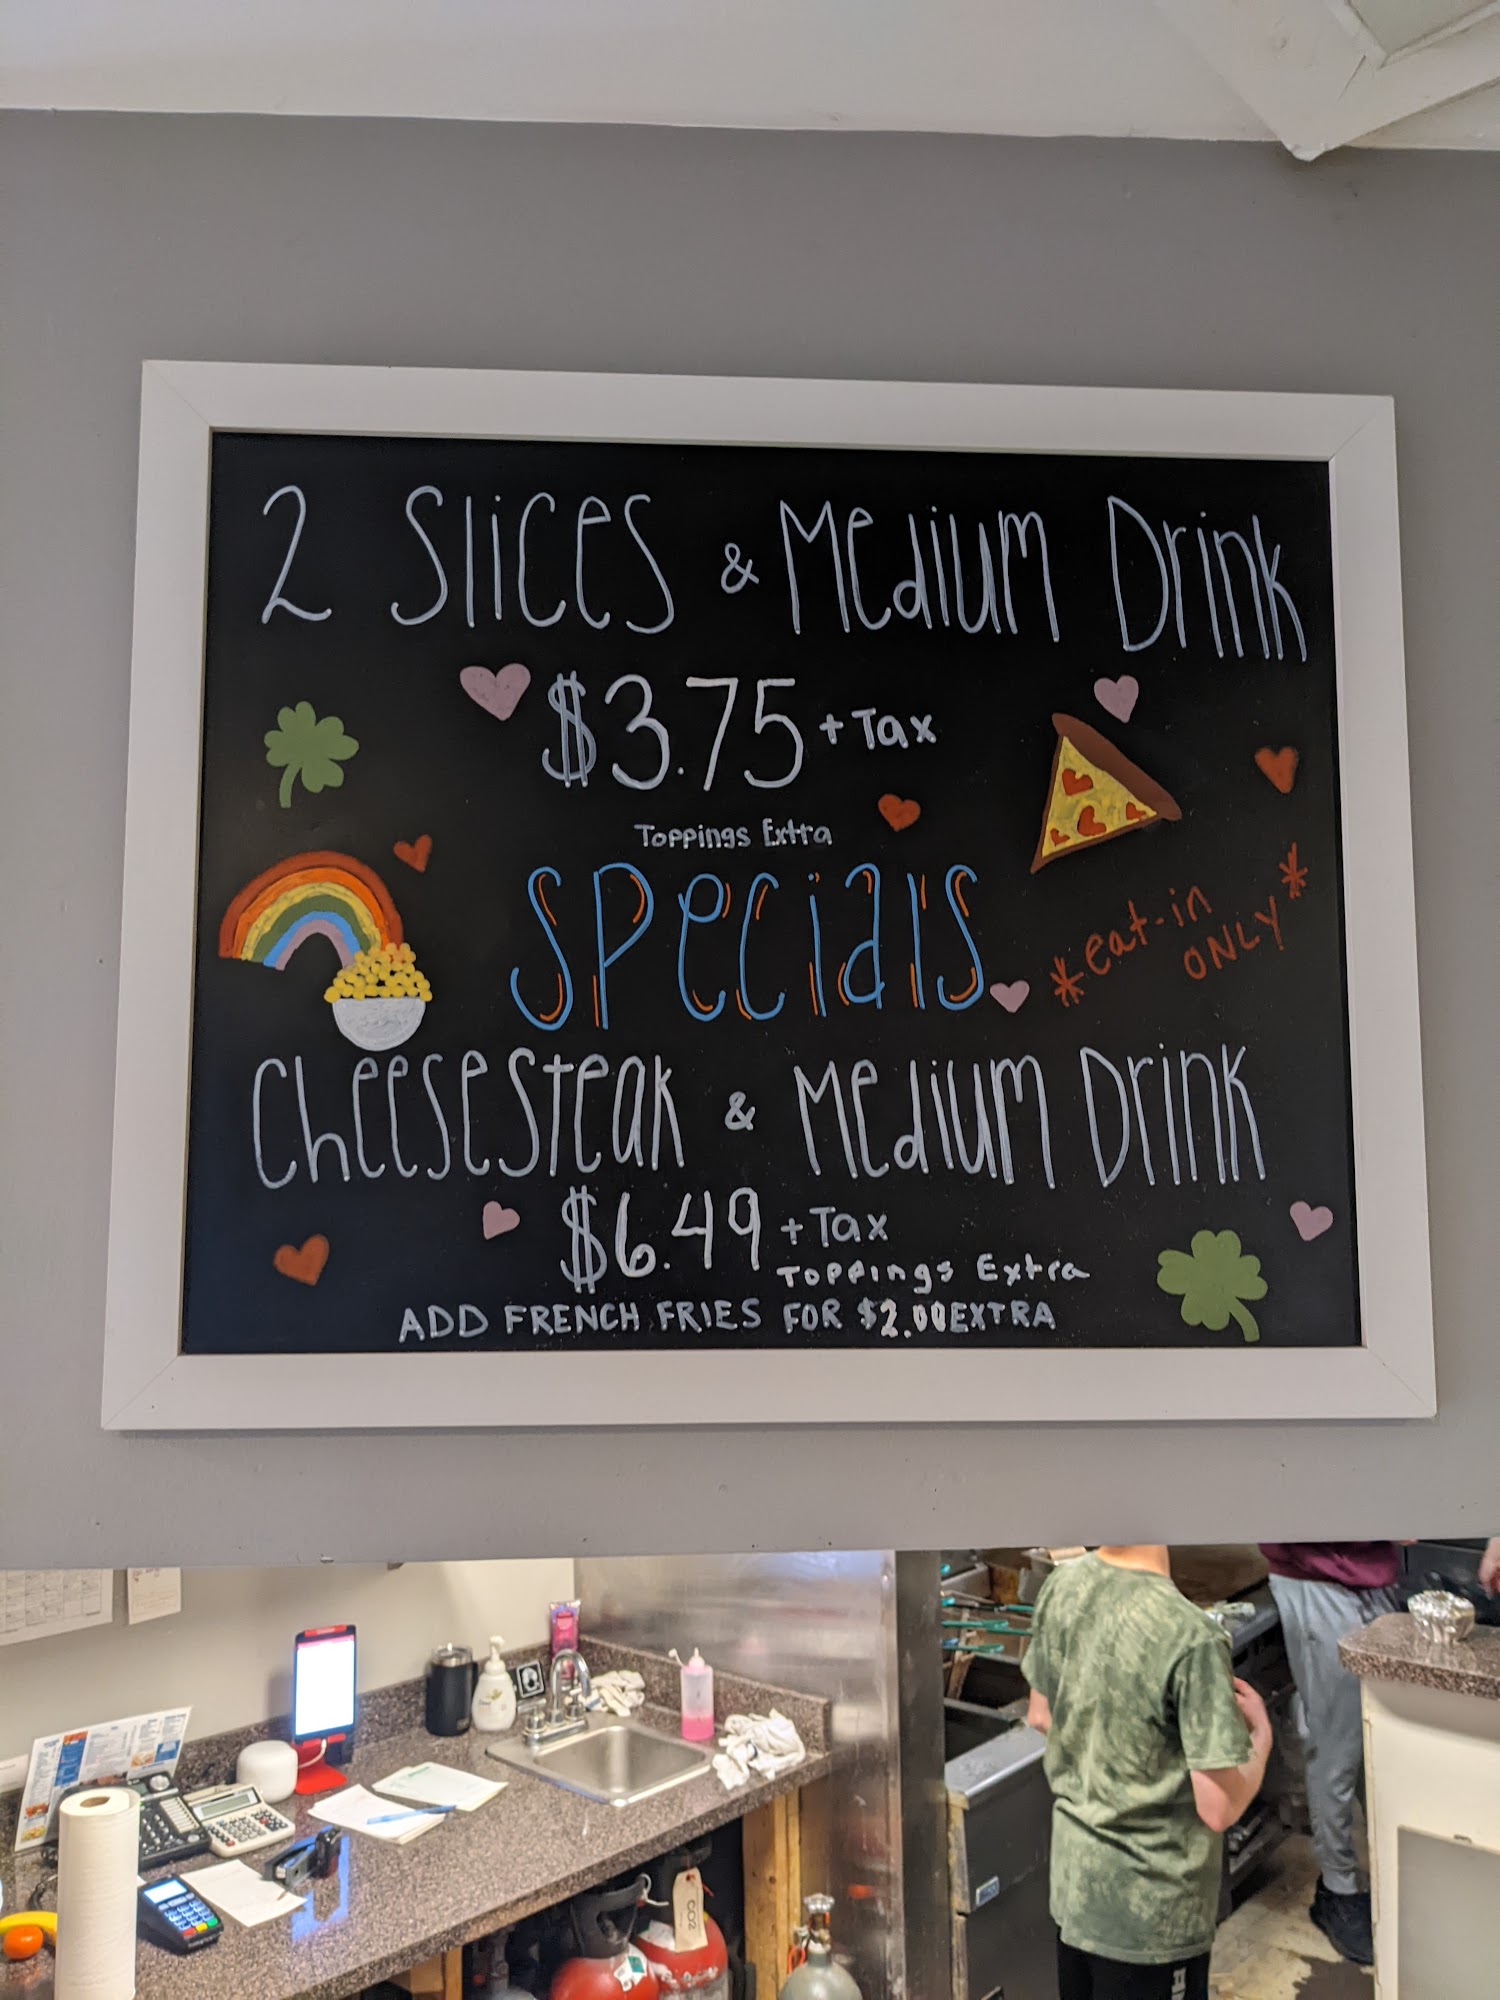 2 Slices & Medium Drink
$3.75 + Tax
Toppings Extra
Specials
*eat-in
ONLY*
Cheesesteak & Medium Drink
$6.49 + Tax
Toppings Extra
ADD FRENCH FRIES FOR $2.00 EXTRA
CO2